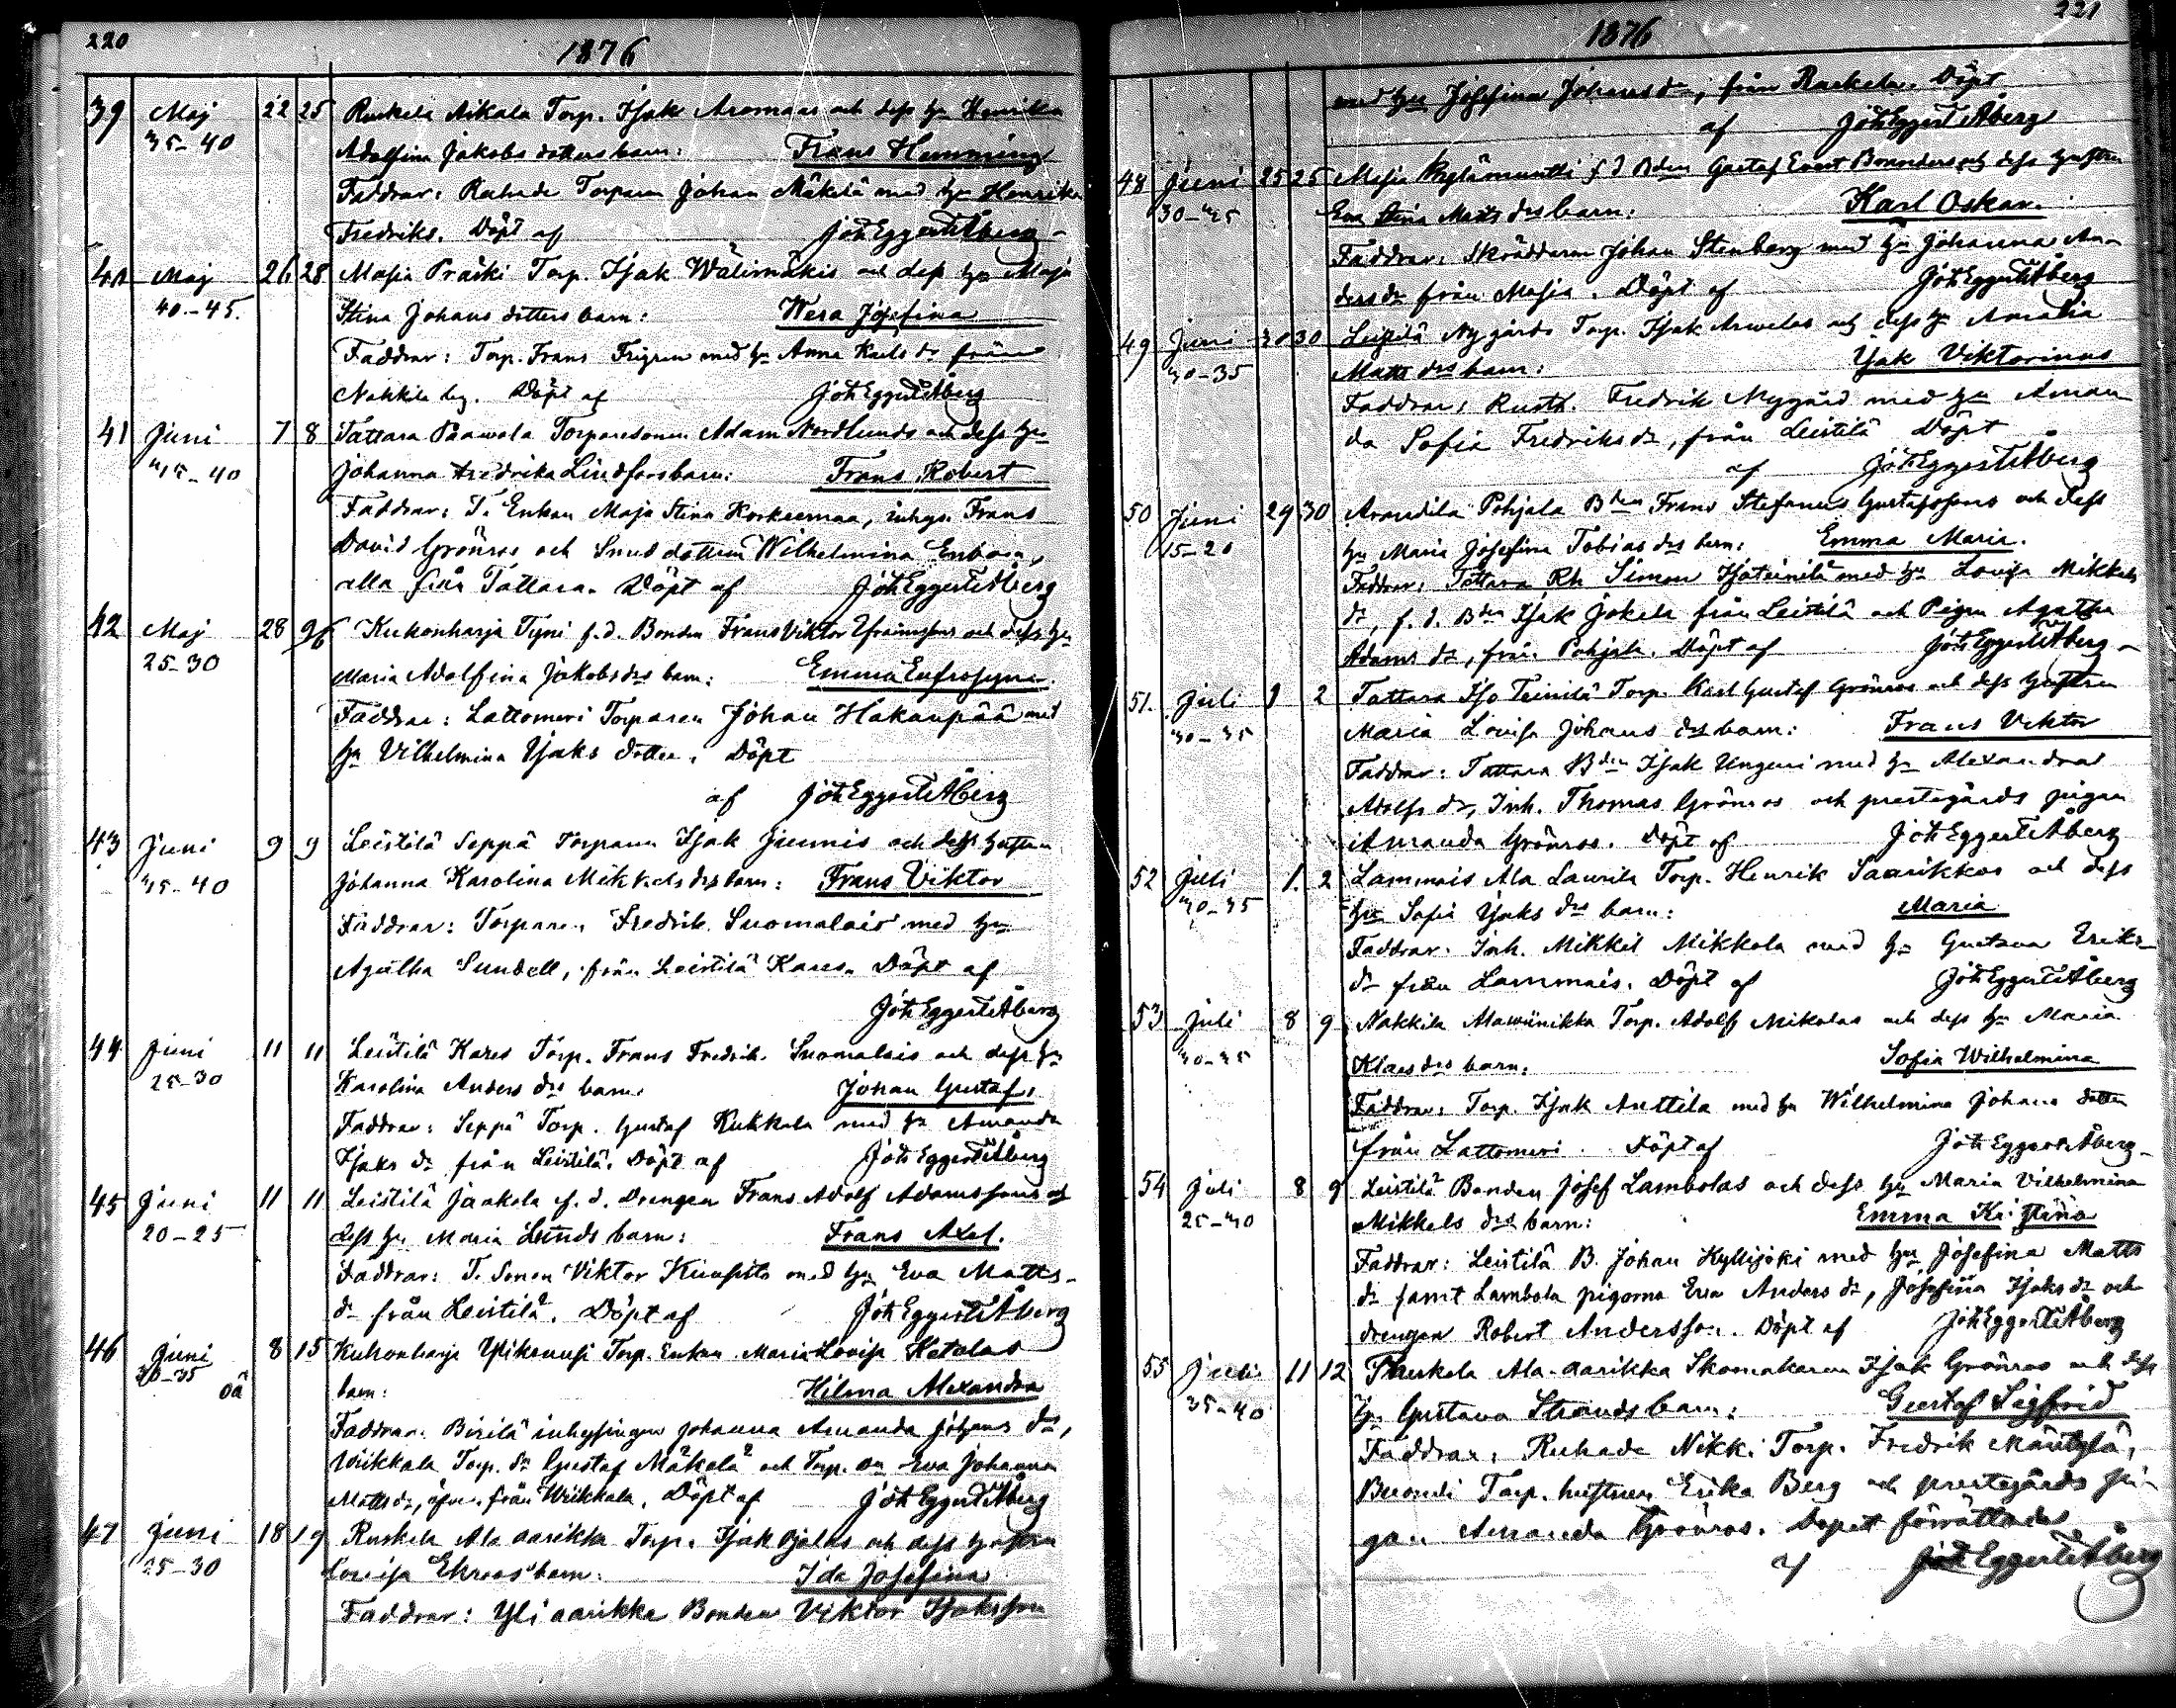 220
1876
39 Maj 22 25 Ruskela Aikala Torp. Isak Aromaas och dess hu Henrika
35-40 Adolfina Jakobs dotters barn: Frans Hemming
Faddrar: Ruhade Torparen Johan Mäkelä med hu Henrika
Fredriks. Döpt af Joh Eggert Åberg
40 Maj 26 28 Masia Präiki Torp. Isak Wälimäkis och dess hu Maja
40-45. Stina Johans dotters barn: Wera Josefina
Faddrar: Torp. Frans Frigren med hu Anna Karls dr från
Nakkila by. Döpt af Joh Eggert Åberg
41 Juni 7 8 Tattara Paawola Torparesonen Adam Nordlunds och dess hu
40 Johanna Fredrika Lindfors barn: Frans Robert
Faddrar: T. Enkan Maja Stina Korkeemaa, inhys. Frans
David Grönros och Smeddottren Wilhelmina Enbom,
alla från Tattara. Döpt af Joh Eggert Åberg
42 Maj 28 9/6 Kukonharja Tyni f.d. Bonden Frans Viktor Efraimssons och dess hu
25-30 Maria Adolfina Jakobs drs barn: Emma Eufrosyne.
Faddrar: Lattomeri Torparen Johan Hakanpää med
hu Vilhelmina Isaks dotter. Döpt
af Joh Eggert Åberg
43 Juni 9 9 Leistilä Seppä Torparen Isak Junnis och dess hustru
35-40 Johanna Karolina Mikkels drs barn: Frans Viktor
Faddrar: Torparen Fredrik Suomalais med hu
Agatha Sundell, från Leistilä Kares. Döpt af
Joh Eggert Åberg
44 Juni 11 11 Leistilä Kares Torp. Frans Fredrik Suomalais och dess hu
25-30 Karolina Anders drs barn: Johan Gustaf.
Faddrar: Seppä Torp. Gustaf Kukkola med hu Amanda
Isaks dr från Leistilä. Döpt af Joh Eggert Åberg
45 Juni 11 11 Leistilä Jaakola f.d. Drengen Frans Adolf Adamssons och
20-25 dess hu Maria Lunds barn: Frans Axel.
Faddrar: T. Sonen Viktor med hu Eva Matts
dr från Leistilä. Döpt af Joh Eggert Åberg
46 Juni 8 15 Kukonharja Torp. Enkan Maria Lovisa Ketolas
30-35 oä barn: Hilma Alexandra
Faddrar: inhysingen Johanna Amanda Johans dr,
Wiikkala Torp. dr Gustaf Mäkelä och Torp. Eva Johanna
Matts dr, från Wiikkala. Döpt af Joh Eggert Åberg
47 Juni 18 19 Ruskela Ala aarikka Torp. Isak Ojalas och dess hustru
25-30 Lovisa Ekroos barn: Ida Josefina
Faddrar: Yli aarikka Bonden Viktor Isaksson
221
1876
med hu Josefina Johans dr, från Ruskela. Döpt
af Joh Eggert Åberg
48 Juni 25 25 Masia f.d. Bden Gustaf Evert och dess hustru
Eva Stina Matts drs barn: Karl Oskar.
Faddrar: Skräddaren Johan Stenberg med hu Johanna An-
ders dr från Masia. Döpt af Joh Eggert Åberg
49 Juni 30 30 Leistilä Nygårds Torp. Isak Arwelas och dess hu Amalia
30-35 Matts drs barn: Isak Viktorinus
Faddrar: Rusth. Fredrik Nygård med hu Aman-
da Sofia Fredriks dr, från Leistilä Döpt
af Joh Eggert Åberg
50 Juni 29 30 Arandila Pohjala Bden Frans Stefanus Gustafssons och dess
15-20 hu Maria Josefina Tobias drs barn: Emma Maria.
Faddrar: Tattara Rh Simon Isoteinilä med hu Lovisa Mikkels
dr, f.d. Bden Isak Jokela från Leistilä och Pigan Agatha
Adams dr, från Pohjala. Döpt af Joh Eggert Åberg
51. Juli 1 2 Tattara Iso Teinilä Torp. Karl Gustaf Grönros och dess hustru
30-35 Maria Lovisa Johans drs barn: Frans Viktor
Faddrar: Tattara Bden Isak Ungeri med hu Alexandra
Adolfs dr, Inh. Thomas Grönros och prestegårds pigan
Amanda Grönros. Döpt af Joh Eggert Åberg
52 Juli 1. 2 Lammais Ala Laurila Torp. Henrik Saarikkos och dess
30-35 hu Sofia Isaks drs barn: Maria
Faddrar: Inh. Mikkel Mikkola med hu Gustava Eriks
dr från Lammais. Döpt af Joh Eggert Åberg
53 Juli 8 9 Nakkila Alawiinikka Torp. Adolf Mikolas och dess hu Maria
30-35 Klas drs barn: Sofia Wilhelmina
Faddrar: Torp. Isak Anttila med hu Wilhelmina Johans dotter
från Lattomeri. Döpt af Joh Eggert Åberg
54 Juli 8 9 Leistilä Bonden Josef Lambolas och dess hu Maria Vilhelmina
Mikkels drs barn: Emma Kristina
Faddrar: Leistilä B. Johan Kyllijoki med hu Josefina Matts
dr samt Lambola pigorna Eva Anders dr, Josefina Isaks dr och
drengen Robert Andersson. Döpt af Joh Eggert Åberg
55 Juli 11 12 Ruskela Ala-aarikka Skomakaren Isak Grönros och dess
35-40 hu Gustava Strands barn: Gustaf Sigfrid
Faddrar: Ruhade Nikki Torp. Fredrik Mäntylä,
Torp. hustrun Erika Berg och prestegårds pi-
gan Amanda Grönros. Dopet förrättades
af Joh Eggert Åberg